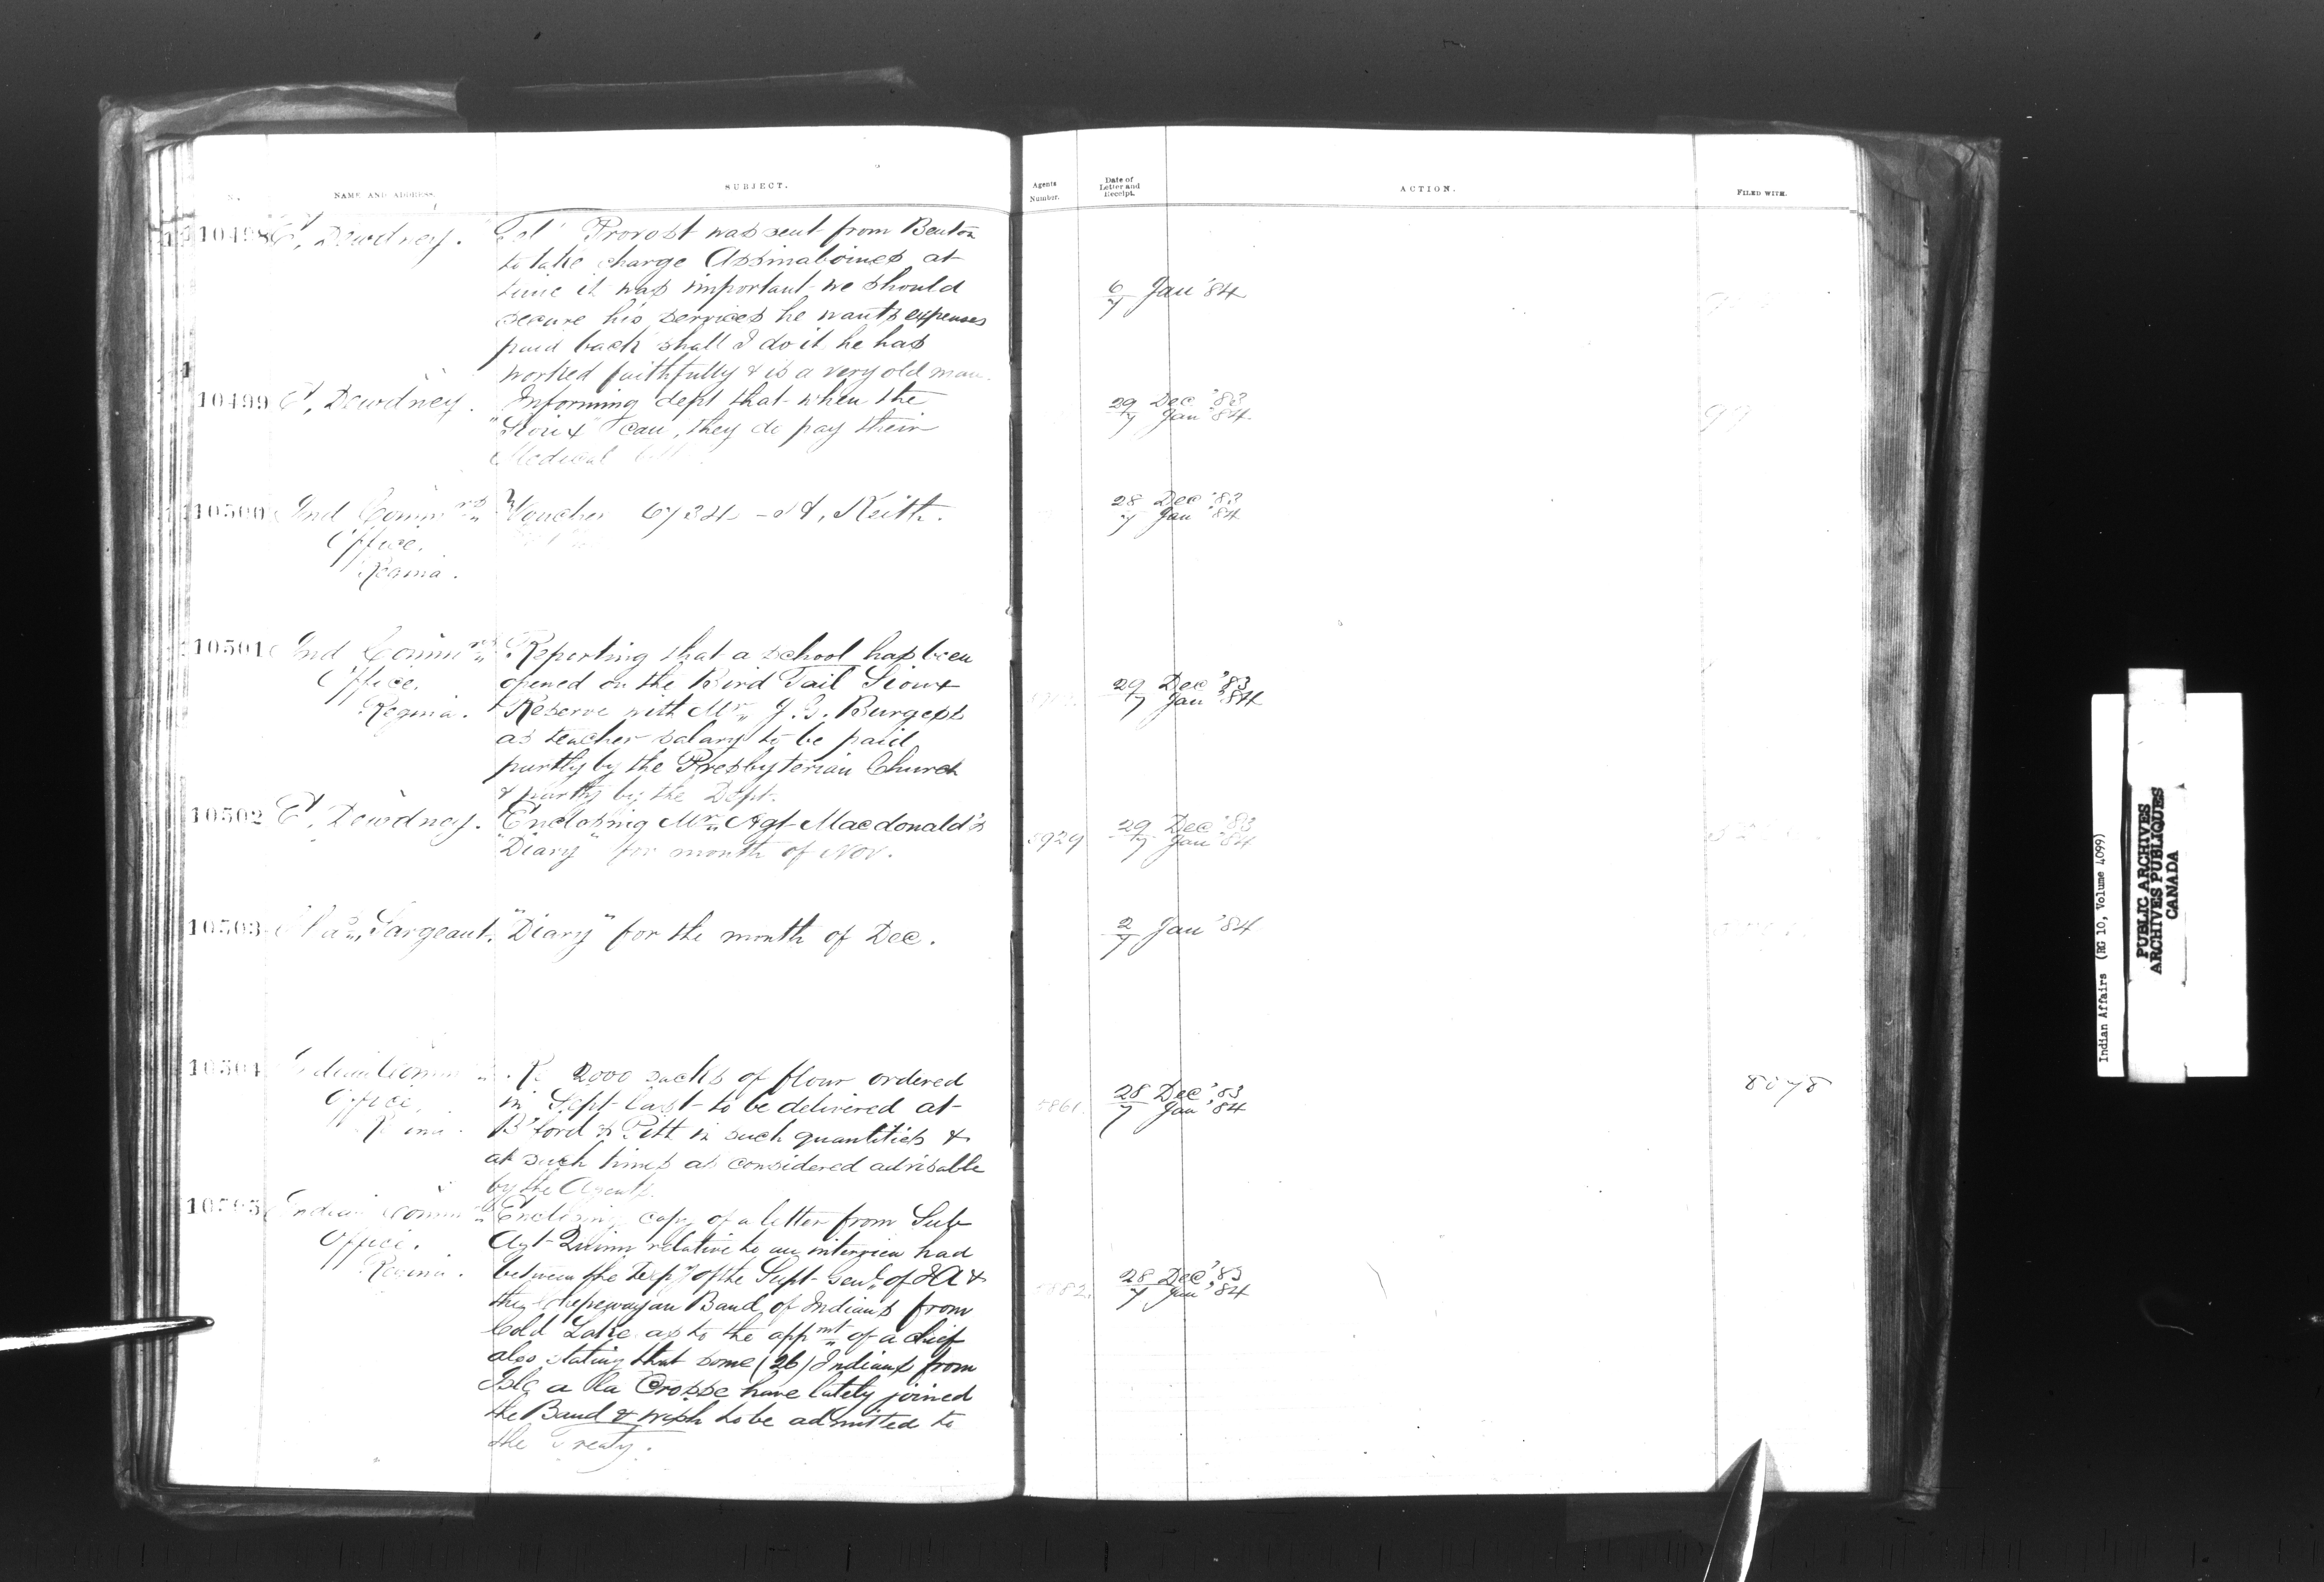 NAME AND ADDRESS.
SUBJECT.
Agents Number.
Date of Letter and Receipt.
ACTION.
FILED WITH.
10498 E, Dewdney.
Tel' Provost was sent from Benton
to take charge Assinaboines at
time it was important we should
secure his services he wants expenses
paid back shall I do it he has
worked faithfully & is a very old man.
6/7 Jan '84
10499 E, Dewdney.
Informing dept that when the
"Sioux" can, they do pay their
Medical
29 Dec '83
7 Jan '84
10500 Ind Comm rs
Office.
Regina.
Voucher 6734 - Keith.
28 Dec '83
7 Jan '84
10501 Ind Comm rs
Office.
Regina.
Reporting that a school has been
opened on the Bird Tail Sioux
Reserve with Mr J. G. Burgess
as teacher salary to be paid
partly by the Presbyterian Church
& partly by the Dept.
29 Dec '83
7 Jan '84
10502 E, Dewdney.
Enclosing Mr Agt Macdonald's
"Diary" for month of Nov.
29 Dec '83
7 Jan '84
10503 Sargeant.
"Diary" for the month of Dec.
2/7 Jan '84
10504 Indian Comm
Office.
Regina.
Re 2000 sacks of flour ordered
in Sept last to be delivered at
B'ford & Pitt in such quantities &
at such times as considered advisable
by the Agents.
28 Dec '83
7 Jan '84
8078
10505 Indian Comm rs
Office.
Regina.
Enclosing copy of a letter from Sub
Agt Quinn relative to an interview had
between the Depy of the Supt Genl of I A &
the Chepewayan Band of Indians from
Cold Lake as to the appmt of a chief
also stating that some (26) Indians from
Isle a la Crosse have lately joined
the Band & wish to be admitted to
the Treaty.
28 Dec '83
7 Jan '84
Indian Affairs (RG 10, Volume 4099)
PUBLIC ARCHIVES
ARCHIVES PUBLIQUES
CANADA